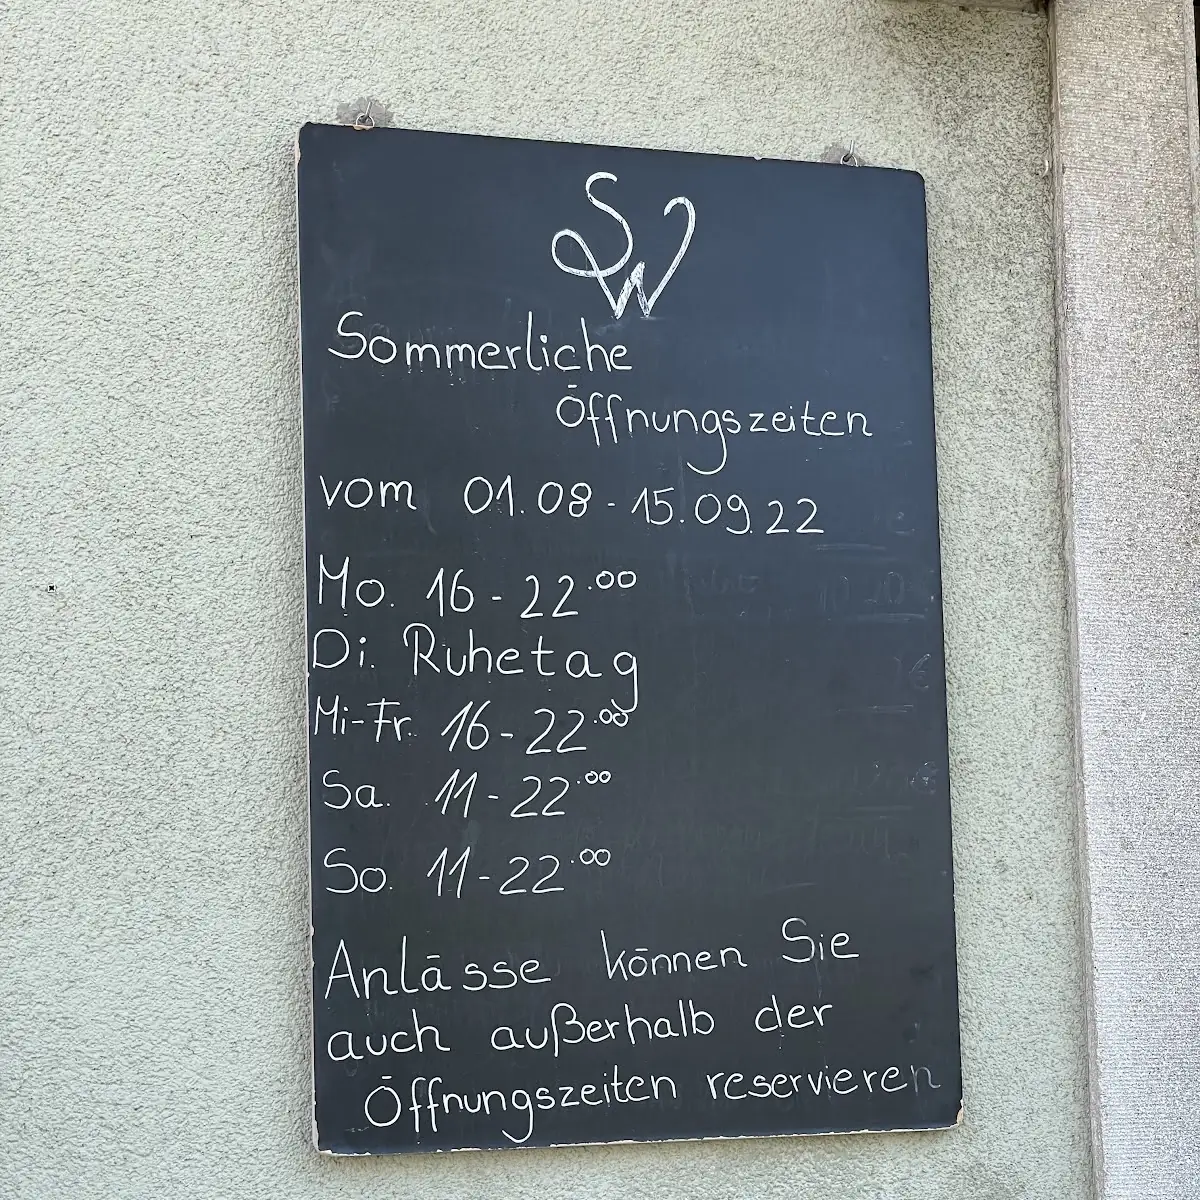 SW
Sommerliche
Öffnungszeiten
vom 01.08 - 15.09.22
Mo. 16 - 22.00
Di. Ruhetag
Mi-Fr. 16 - 22.00
Sa. 11 - 22.00
So. 11 - 22.00
Anlässe können Sie
auch außerhalb der
Öffnungszeiten reservieren